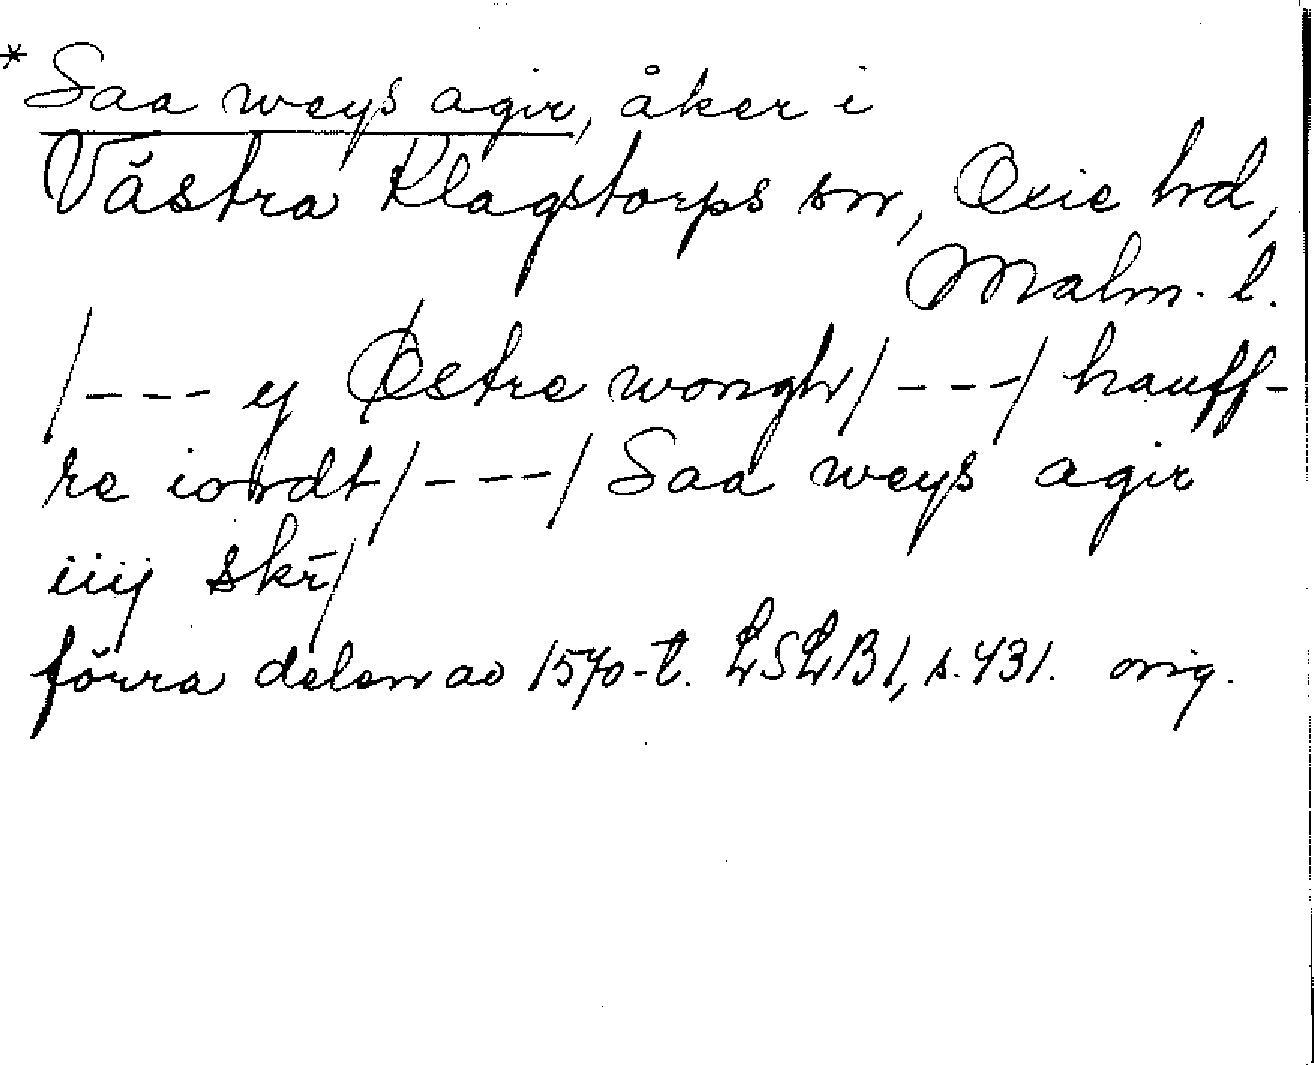 * Saa weys agir, åker i
Västra Klagstorps sn, Oxie hd,
Malm. l.
/--- ij Østre wongh/---/ hauff-
re iordt/---/ Saa weys agir
iiij skr̄/
förra delen av 1570-t. LSLB1, s. 431. orig.